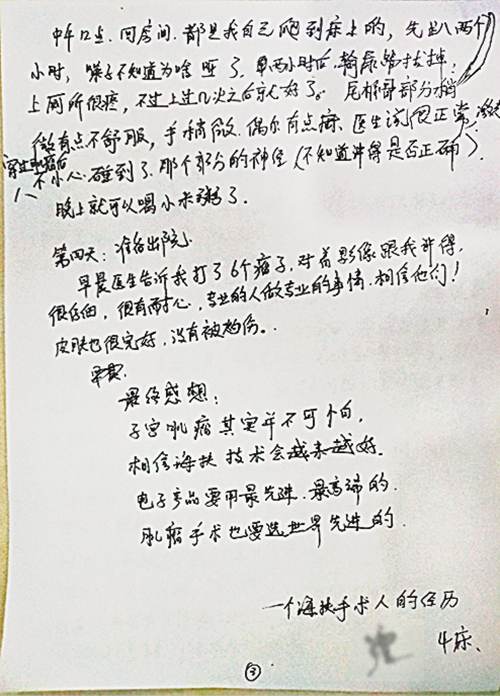 中午12点.回房间.都是我自己爬到床上的,先趴两个
小时,嗓子不知道为啥哑了.早两小时后输尿管拔掉;
上厕所很疼,不过上过几次之后就好了。尾椎骨部分稍
微有点不舒服,手稍微.偶尔有点麻.医生说很正常,激
穿过肌瘤后
不小心碰到了.那个部分的神经(不知道讲得是否正确)。
晚上就可以喝小米粥了.
第四天:准备出院.
早晨医生告诉我打了6个瘤子,对着影像跟我讲得.
很仔细,很有耐心,专业的人做专业的事情.相信他们!
皮肤也很完好,没有被灼伤。.
最终感想:
子宫肌瘤其实并不可怕,
相信海扶技术会越来越好。
电子产品要用最先进.最高端的.
肌瘤手术也要选世界先进的.
一个海扶手术人的经历
4床、
③